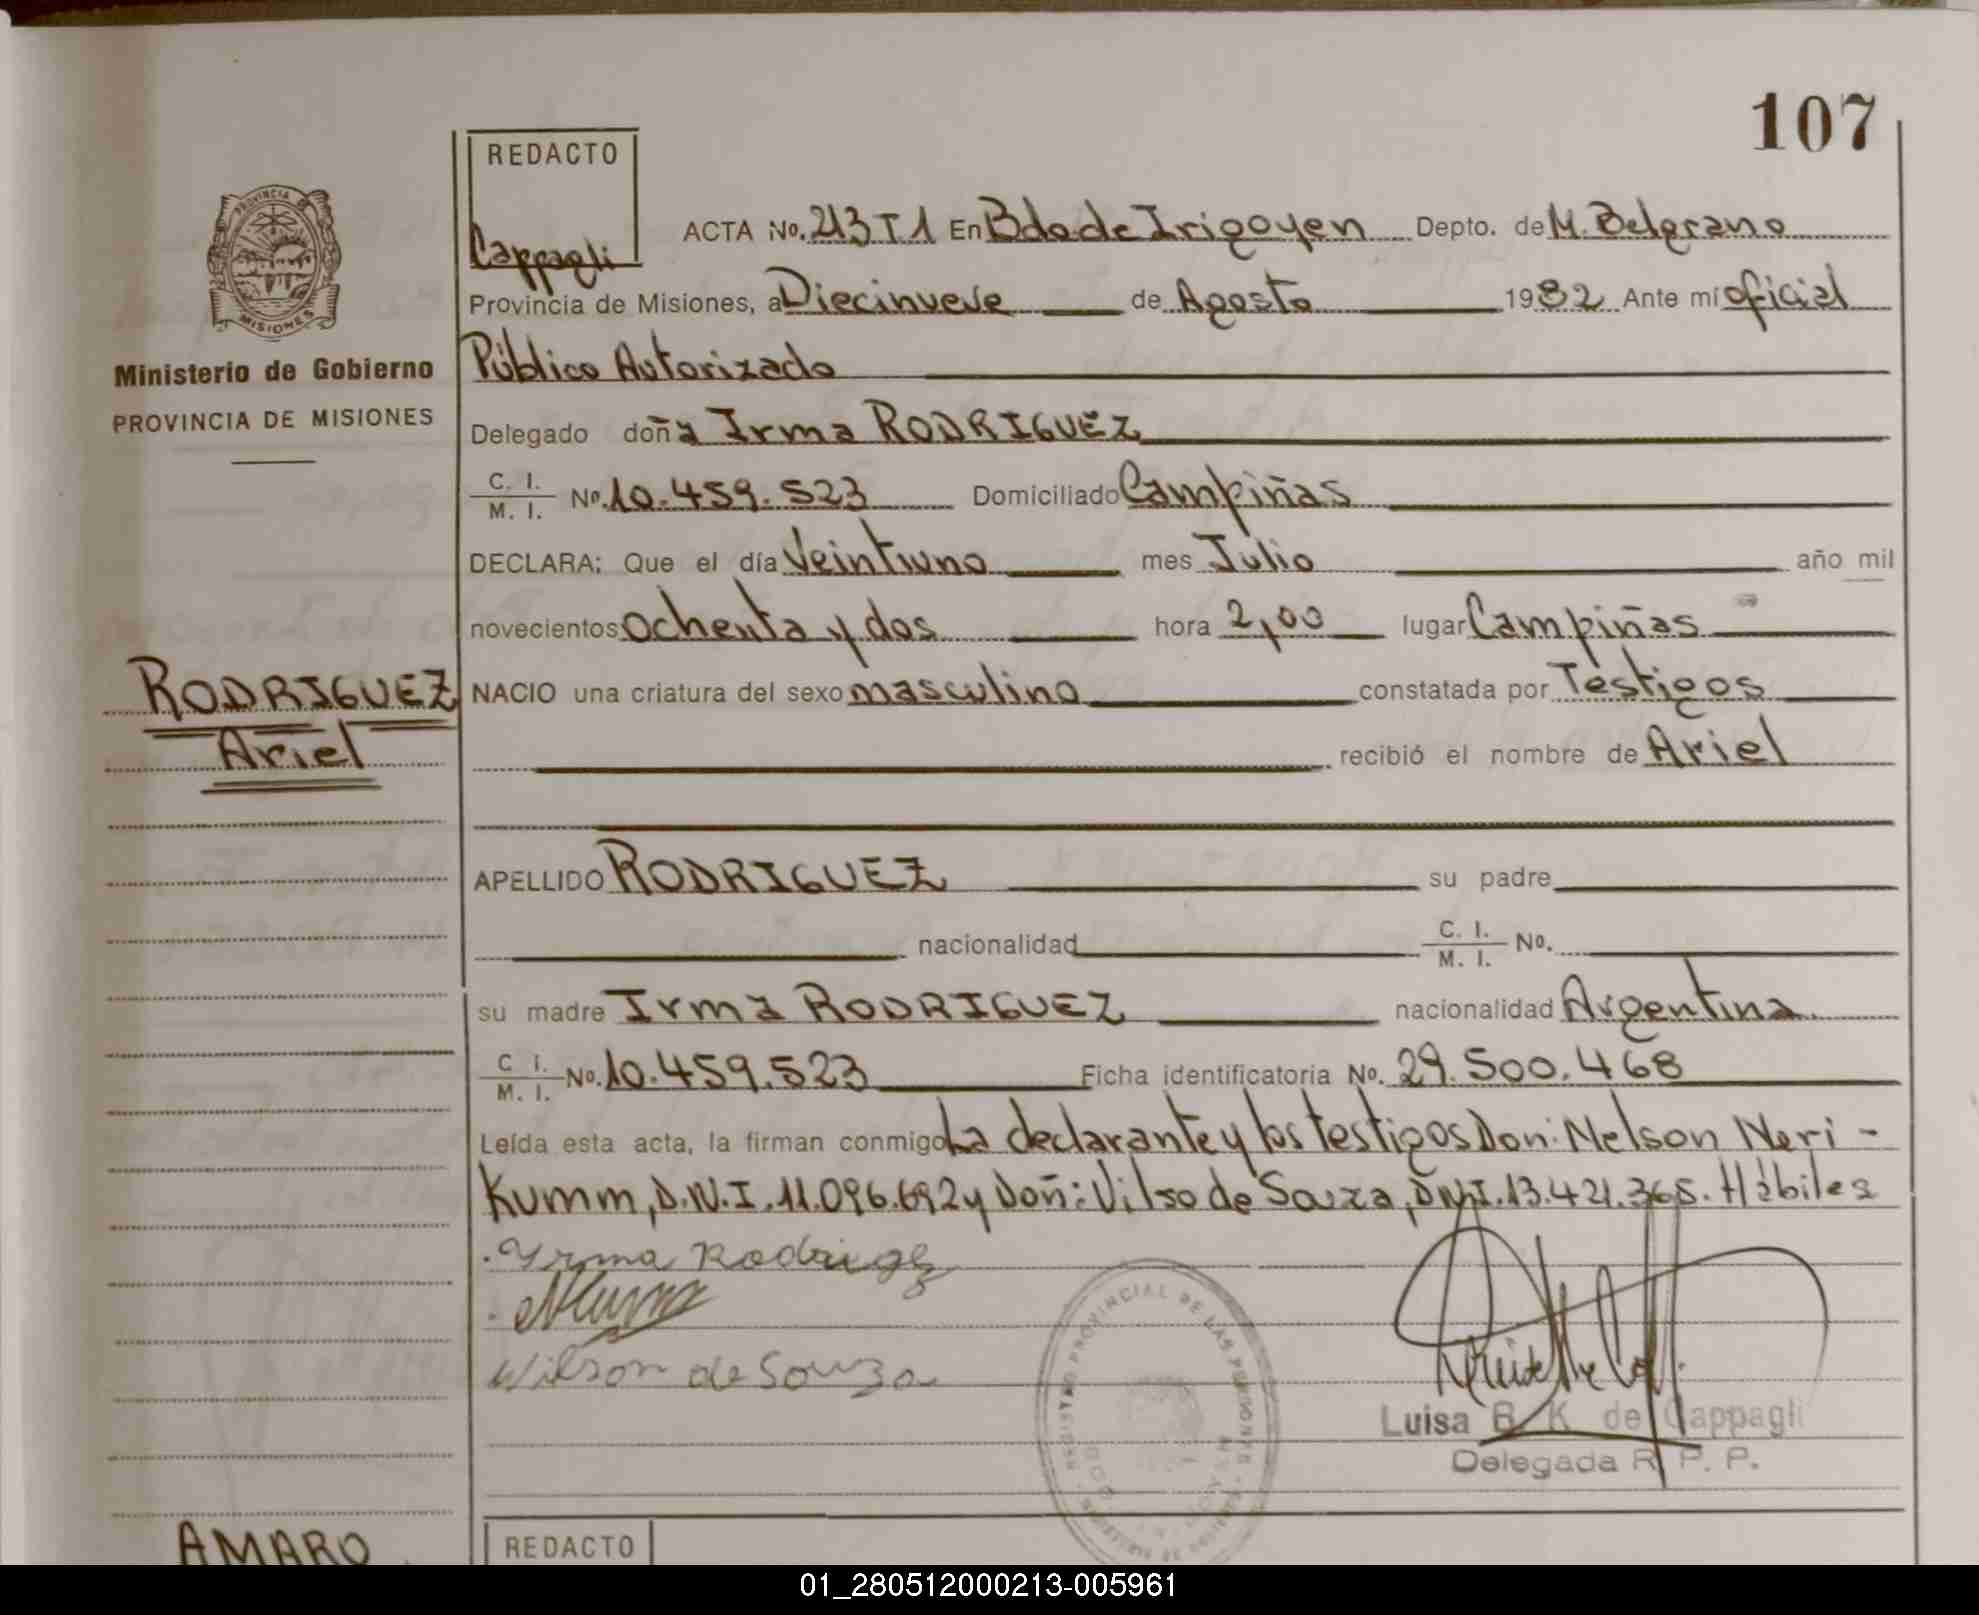 107
REDACTO
Cappagli
PROVINCIA
MISIONES
Ministerio de Gobierno
PROVINCIA DE MISIONES
ACTA No. 213 T 1 En Bdo de Irigoyen Depto. de M. Belgrano
Provincia de Misiones, a Diecinueve de Agosto 1982 Ante mí oficial
Público Autorizado
Delegado doña Irma RODRIGUEZ
C. I. / M. I. No. 10.459.523 Domiciliado Campiñas
DECLARA: Que el día Veintiuno mes Julio año mil
novecientos Ochenta y dos hora 2,00 lugar Campiñas
RODRIGUEZ
Ariel
NACIO una criatura del sexo masculino constatada por Testigos
recibió el nombre de Ariel
APELLIDO RODRIGUEZ su padre
nacionalidad C. I. / M. I. No.
su madre Irma RODRIGUEZ nacionalidad Argentina
C I. / M. I. No. 10.459.523 Ficha identificatoria No. 29.500.468
Leída esta acta, la firman conmigo La declarante y los testigos Don: Nelson Neri -
Kumm, D.N.I. 11.096.692 y Doñ: Vilso de Souza, D.N.I. 13.421.365. Hábiles
Yrma Rodrigez
Wilson de Souza
REGISTRO PROVINCIAL DE LAS PERSONAS
Luisa B. K. de Cappagli
Delegada R. P. P.
AMARO
REDACTO
01_280512000213-005961